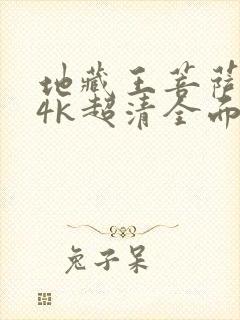 地藏王菩萨
4K超清全面
兔子呆